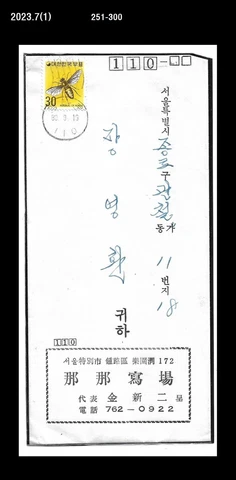 2023.7(1) 251-300
110-
대한민국우표
30
110
서울특별시 종로구 관철동 11번지 18
강영환 귀하
110
서울特別市 鍾路區 樂園洞 172
那那寫場
代表 金新二 呈
電話 762-0922